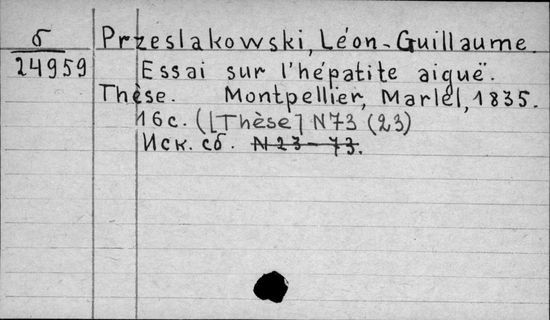 б Przeslakowski, Léon-Guillaume.
24959 Essai sur l'hépatite aiguë.
Thèse. Montpellier, Martel, 1835.
16 c. ([Thèse] N73 (23)
Иск. сб. N 23-73.